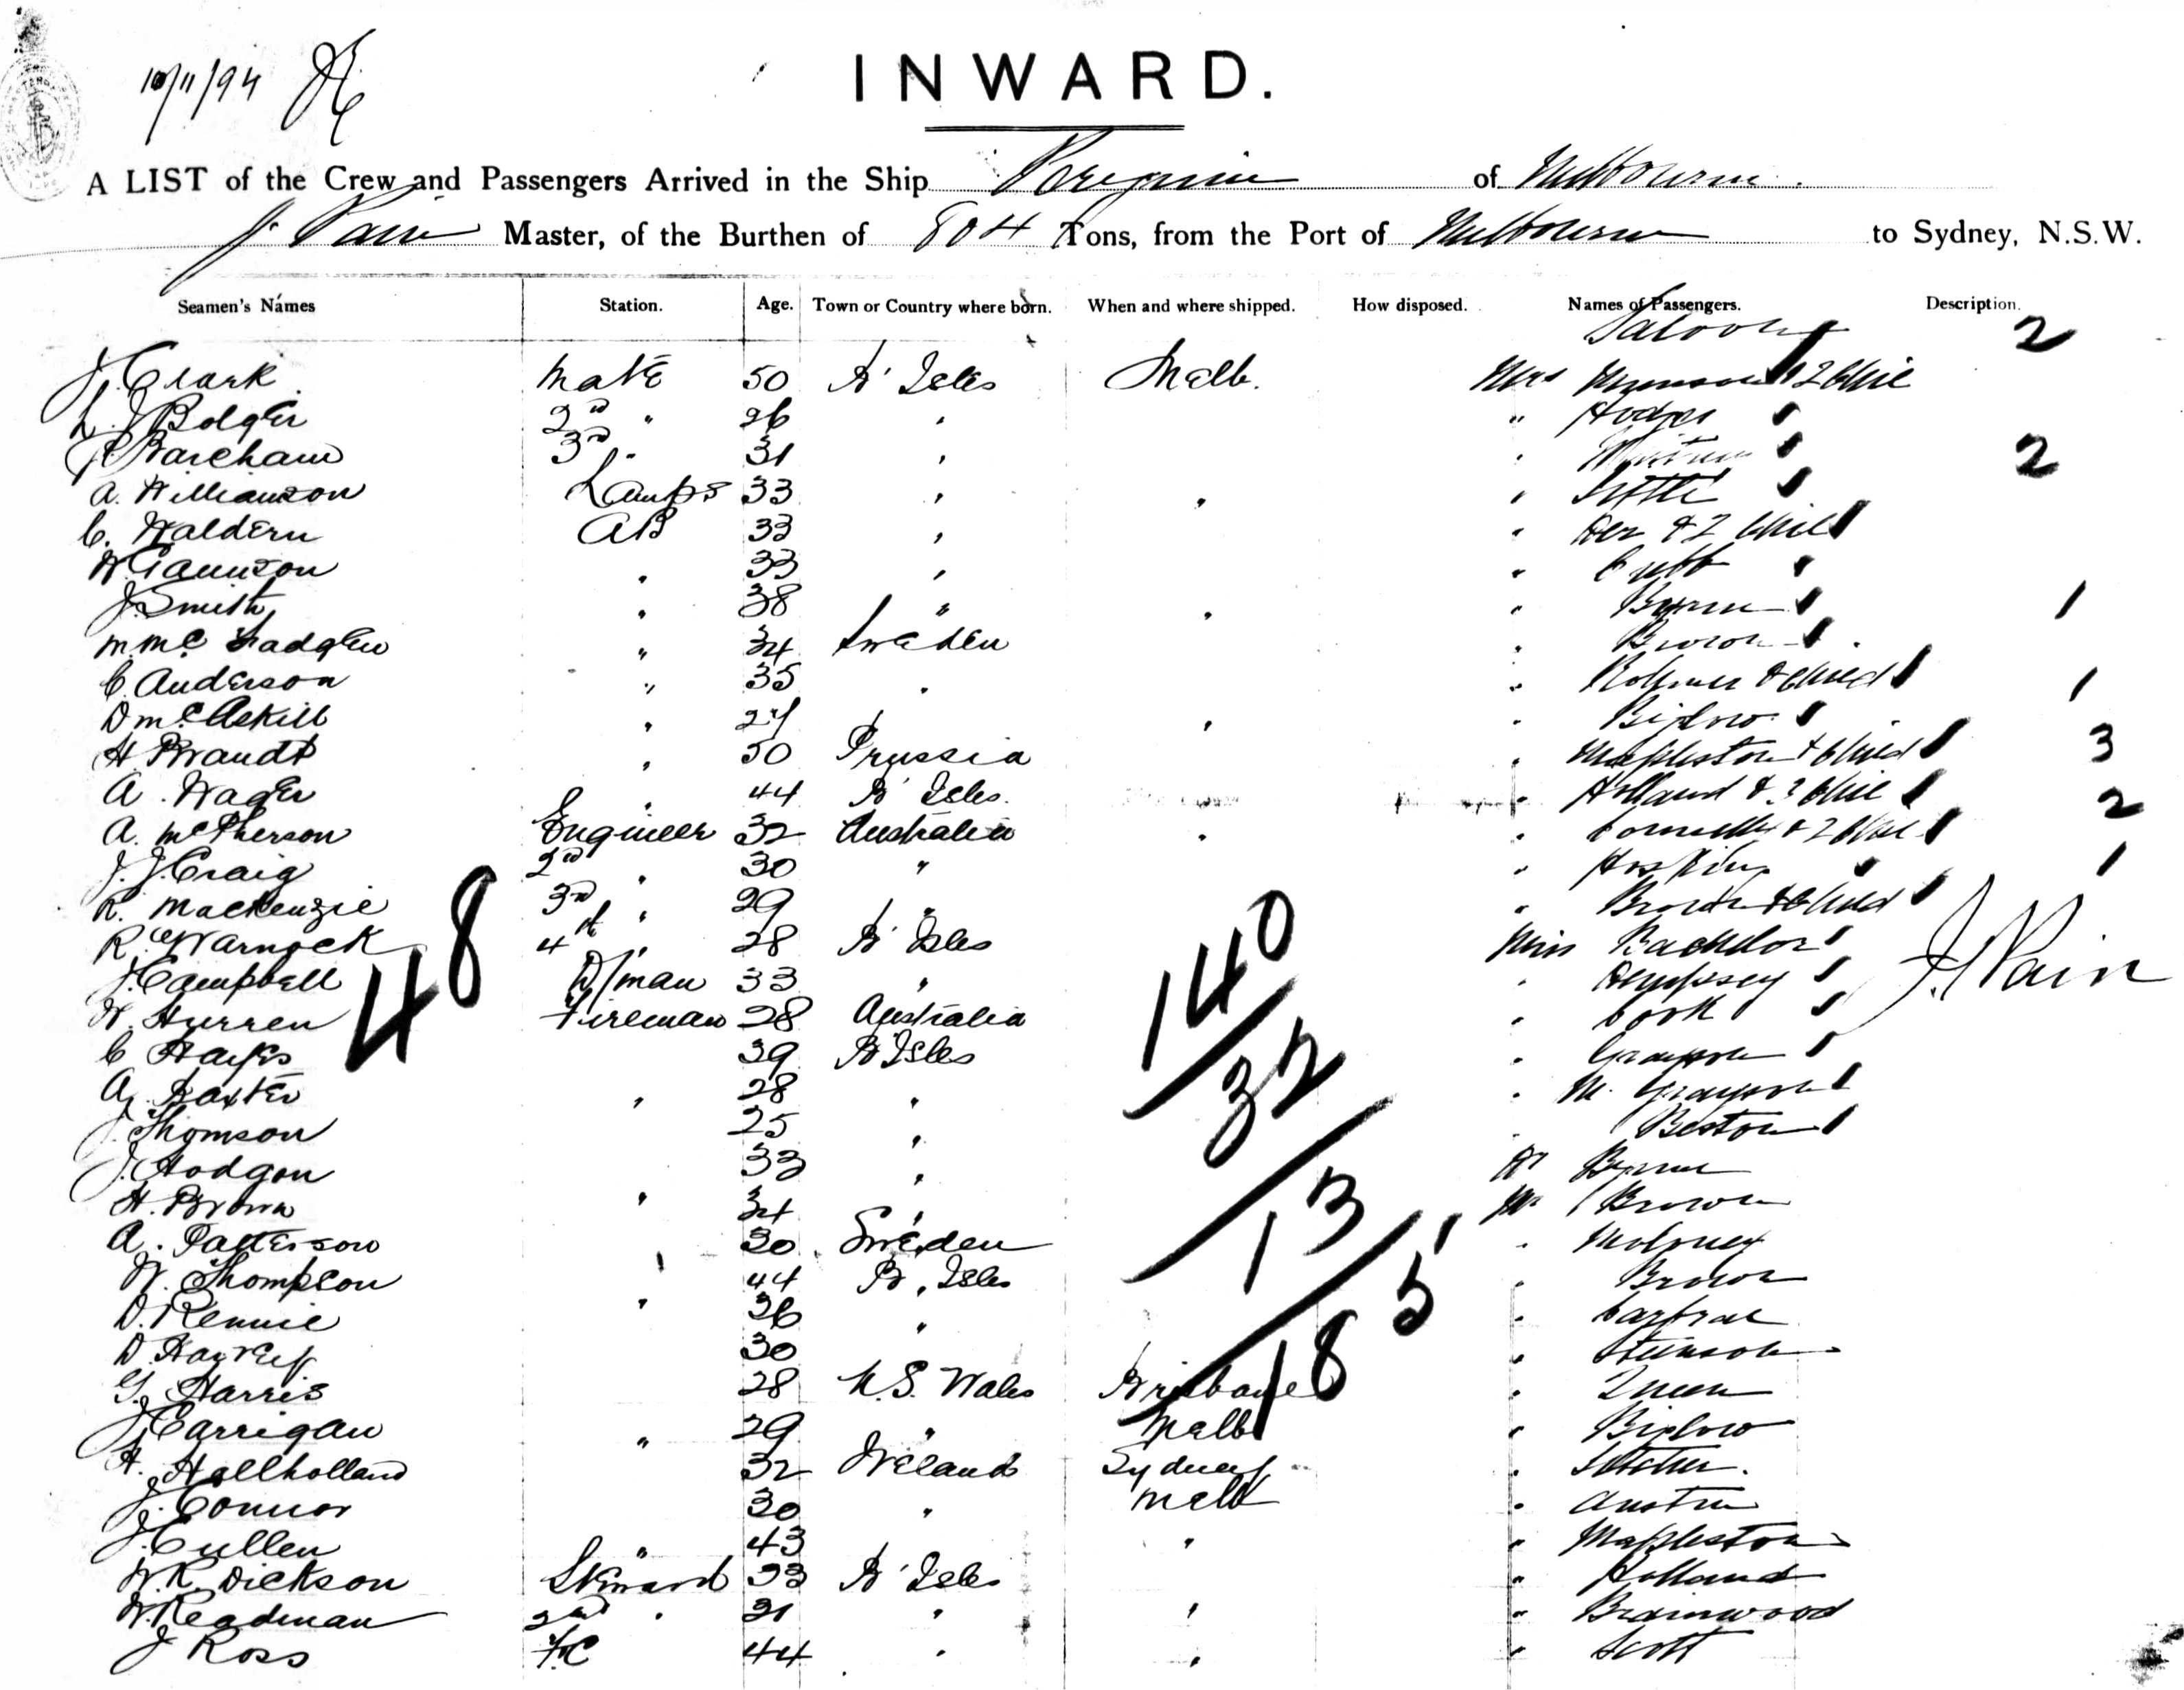 10/11/94
INWARD.
A LIST of the Crew and Passengers Arrived in the Ship Peregrine of Melbourne.
J. Pain Master, of the Burthen of 804 Tons, from the Port of Melbourne to Sydney, N.S.W.
Seamen's Names Station. Age. Town or Country where born. When and where shipped. How disposed. Names of Passengers. Description.
Saloon 2
J. Clark Mate 50 B' Isles Melb. Mrs & 2 Chil
L. J. Bolger 2nd " 26 " Hodges
J. Bareham 3rd " 31 " 2
A. Williamson Lamps 33 " " " Little
C. Waldern AB 33 " " & 2 Chil
W. Gaunson " 33 " " Cubb
J. Smith " 38 " " " Byrne 1
M. Mc Fadgen " 34 Sweden " Brown
C. Anderson " 35 " " & Child 1
D McAskill " 27 " " " Biglow
H. Brandt " 50 Prussia " Mapleston & Child 3
A. Wager " 44 B' Isles " Holland & 3 Chil 2
A. McPherson Engineer 32 Australia " " & 2 Chil
J. J. Craig 2nd " 30 " " Hoskins 1
R. Mackenzie 3rd " 29 " " & Child
R. Warnock 4th " 28 B' Isles Miss Bachelor
J. Campbell D/man 33 " " Dempsey J. Pain
W. Hurren Fireman 28 Australia " Cook
C Hayes 39 B' Isles " Grayson
A. Baxter " 28 " " M. Grayson
J. Thomson 25 " " Beston
J. Hodgon 33 " Dr Byrne
H. Brown " 34 " Mr Brown
A. Patterson 30 Sweden " Moloney
W. Thompson " 44 B. Isles " Brown
D. Rennie " 36 "
D. 30 " Stinson
G. Harris 28 N.S. Wales Brisbane " Queen
J. Carrigan " 29 " Melb " Biglow
H. Hallholland 32 Ireland Sydney "
J. Connor 30 " Melb " Austin
J. Cullen " 43 " " Mapleston
W. R. Dickson Steward 33 B' Isles " Holland
W. Readman 2nd " 31 " " " Braimwood
J Ross F.C 44 " " " Scott
48
140
32
13
185